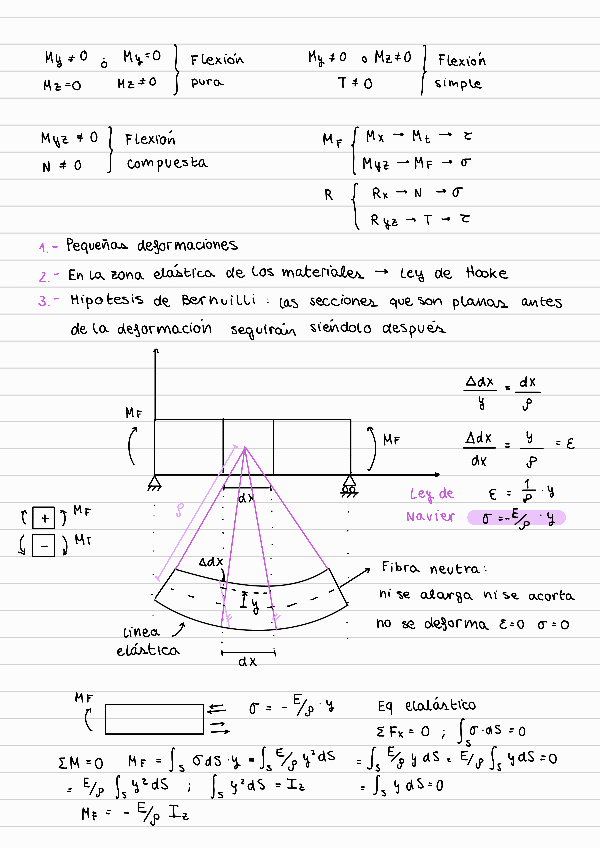 My ≠ 0 ó My=0 } Flexión
Mz=0 Mz ≠0 pura
My≠0 o Mz≠0 } Flexión
T ≠ 0 simple
Myz ≠ 0 } Flexión
N ≠ 0 compuesta
MF { Mx → Mt → τ
Myz → MF → σ
R { Rx → N → σ
Ryz → T → τ
1.- Pequeñas deformaciones
2.- En la zona elástica de los materiales → Ley de Hooke
3.- Hipotesis de Bernuilli: las secciones que son planas antes
de la deformación seguirán siéndolo después
MF
MF
dx
ρ
Δdx
y
dx
Δdx/y = dx/ρ
Δdx/dx = y/ρ = ε
Ley de ε = 1/ρ · y
Navier σ=-E/ρ · y
+ MF
- MF
Fibra neutra:
ni se alarga ni se acorta
no se deforma ε=0 σ=0
línea
elástica
MF
σ = - E/ρ · y
Eq elalástico
ΣFx = 0 ; ∫s σ·dS = 0
ΣM=0 MF = ∫s σdS·y = ∫s E/ρ y²dS
= ∫s E/ρ y dS = E/ρ ∫s ydS=0
= E/ρ ∫s y²dS ; ∫s y²dS = Iz
= ∫s y dS=0
MF = - E/ρ Iz